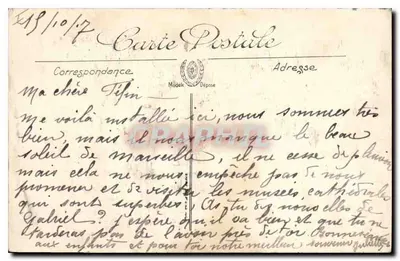 Le 15/10/17
Carte Postale
Correspondance Adresse
Modèle Déposé
Ma chère Fifin
me voilà installée ici, nous sommes très
bien, mais il nous manque le beau
soleil de Marseille, il ne cesse de pleuvoir
mais cela ne nous empêche pas de nous
promener et de visiter les musées, cathédrales
qui sont superbes. As-tu des nouvelles de
Gabriel? j'espère qu'il va bien et que tu ne
tarderas pas de l'avoir près de toi
aux enfants et pour toi notre meilleur souvenir